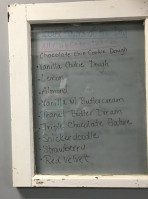 Chocolate Chip Cookie Dough
Vanilla Cookie Dough
Lemon
Almond
Vanilla w/ Buttercream
Peanut Butter Dream
Triple Chocolate
Snickerdoodle
Strawberry
Red Velvet